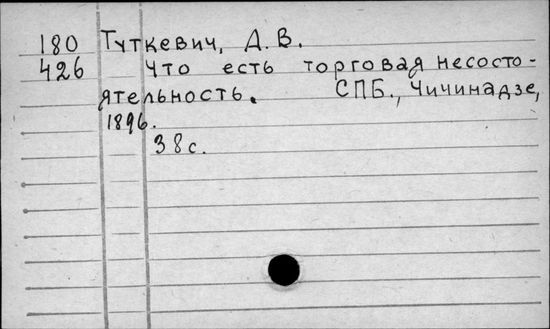 180 Туткевич, Д. В.
426 Что есть торговая несосто-
ятельность. СПБ., Чичинадзе,
1896.
38с.